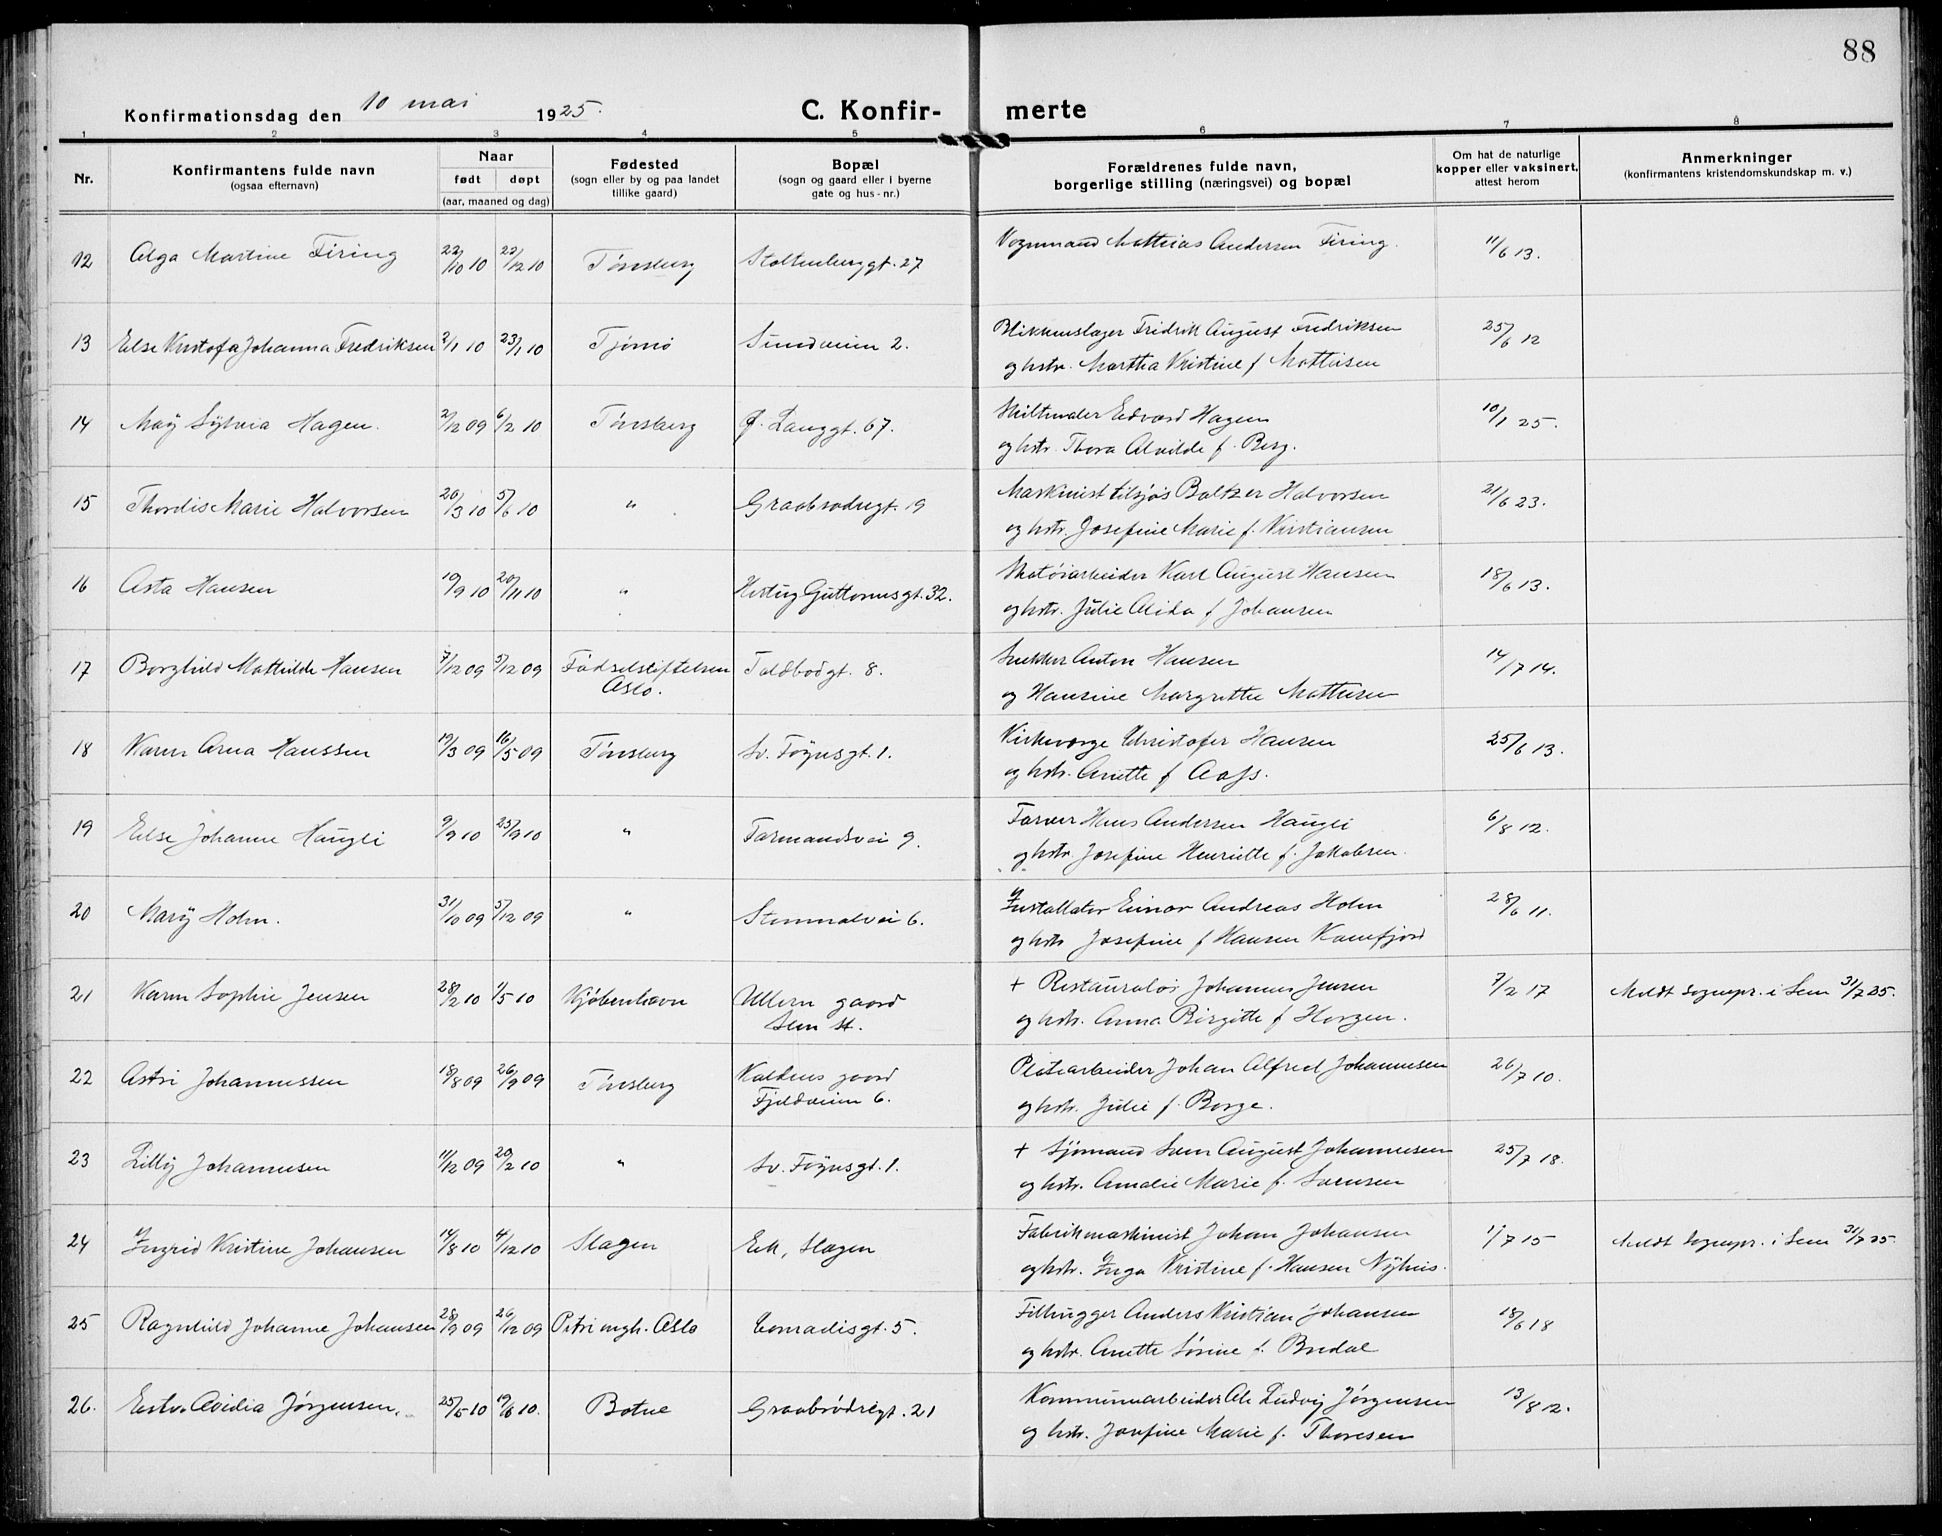 88
Konfirmationsdag den 10 mai 1925.
C. Konfirmerte
1 2 3 4 5 6 7 8
Nr. Konfirmantens fulde navn (ogsaa efternavn) Naar født døpt (aar, maaned og dag) Fødested (sogn eller by og paa landet tillike gaard) Bopæl (sogn og gaard eller i byerne gate og hus-nr.) Forældrenes fulde navn, borgerlige stilling (næringsvei) og bopæl Om hat de naturlige kopper eller vaksinert, attest herom Anmerkninger (konfirmantens kristendomskundskap m. v.)
12 Olga Martine Firing 22/10 10 22/12 10 Tønsberg Stoltenberggt. 27 Vognmand Mathias Andersen Firing. 11/6 13.
13 Else Kristofa Johanna Fredriksen 2/1 10 23/1 10 Tjømø Sundveien 2. Blikkenslager Fridrik August Fredriksen 25/6 12
og hstr. Martha Kristine f Mathisen
14 Maÿ Sÿlvia Hagen. 2/12 09 6/2 10 Tønsberg Ø. Langgt. 67. Skiltmaler Edvard Hagen 10/1 25.
og hstr. Thora Alvilde f. Berg.
15 Thordis Marie Halvorsen 26/3 10 5/6 10 " Graabrødregt. 19 Maskinist tilsjøs Baltzer Halvorsen 21/6 23.
og hstr. Josefine Marie f. Kristiansen
16 Asta Hansen 19/9 10 20/11 10 " Hertug Guttormsgt. 32. Skotøiarbeider Karl August Hansen 18/6 13.
og hstr. Julie Alida f Johansen
17 Borghild Mathilde Hansen 7/12 09 5/12 09 Fødselstiftelsen Toldbodgt. 8. Snekker Anton Hansen 14/7 14.
Oslo. og Hansine Margrethe Mathisen
18 Karen Arna Hanssen 19/3 09 16/5 09 Tønsberg Sv. Føynsgt. 1. Kirkeverge Christofer Hansen 25/6 13.
og hstr. Anette f Aass.
19 Else Johanne Haugli 9/9 10 25/9 10 " Farmandsvei 9. Farver Hans Andersen Haugli 6/8 12.
og hstr. Josefine Henriette f. Jakobsen.
20 Marÿ Holm. 31/10 09 5/12 09 " Stenmalvei 6. Installatør Einar Andreas Holm 28/6 11.
og hstr Josefine f Hansen Ranefjord
21 Karen Sophie Jensen 28/2 10 1/5 10 Kjøbenhavn Ullern gaard + Restauratør Johannes Jensen 7/2 17 Meldt sognepr. i Sem 31/7 25.
Sem st. og hstr. Anna Birgitte f Horgen.
22 Astri Johannessen 18/8 09 26/9 09 Tønsberg Kaldnes gaard Platearbeider Johan Alfred Johannesen 26/7 10.
Fjeldveien 6. og hstr. Julie f. Borge.
23 Lillÿ Johannesen 11/12 09 20/2 10 " Sv. Føynsgt. 1. + Sjømand Sven August Johannesen 25/7 18.
og hstr. Amalie Marie f. Sørensen
24 Ingrid Kristine Johansen 14/8 10 4/12 10 Slagen Eik, Slagen Fabrikmaskinist Johan Johansen 1/7 15 Meldt sognepr. i Sem 31/7 25.
og hstr. Inga Kristine f. Hansen Nÿhus.
25 Ragnhild Johanne Johansen 28/9 09 26/12 09 Petri mgh. Oslo Conradisgt. 5. Filhugger Anders Kristian Johansen 18/6 18
og hstr. Anette Sørine f. Bredal
26. Ester Ovidia Jørgensen. 25/5 10 19/6 10. Botne Graabrødregt. 21 Kommunearbeider Ole Ludvig Jørgensen 13/8 12.
og hstr. Josefine Marie f. Thoresen